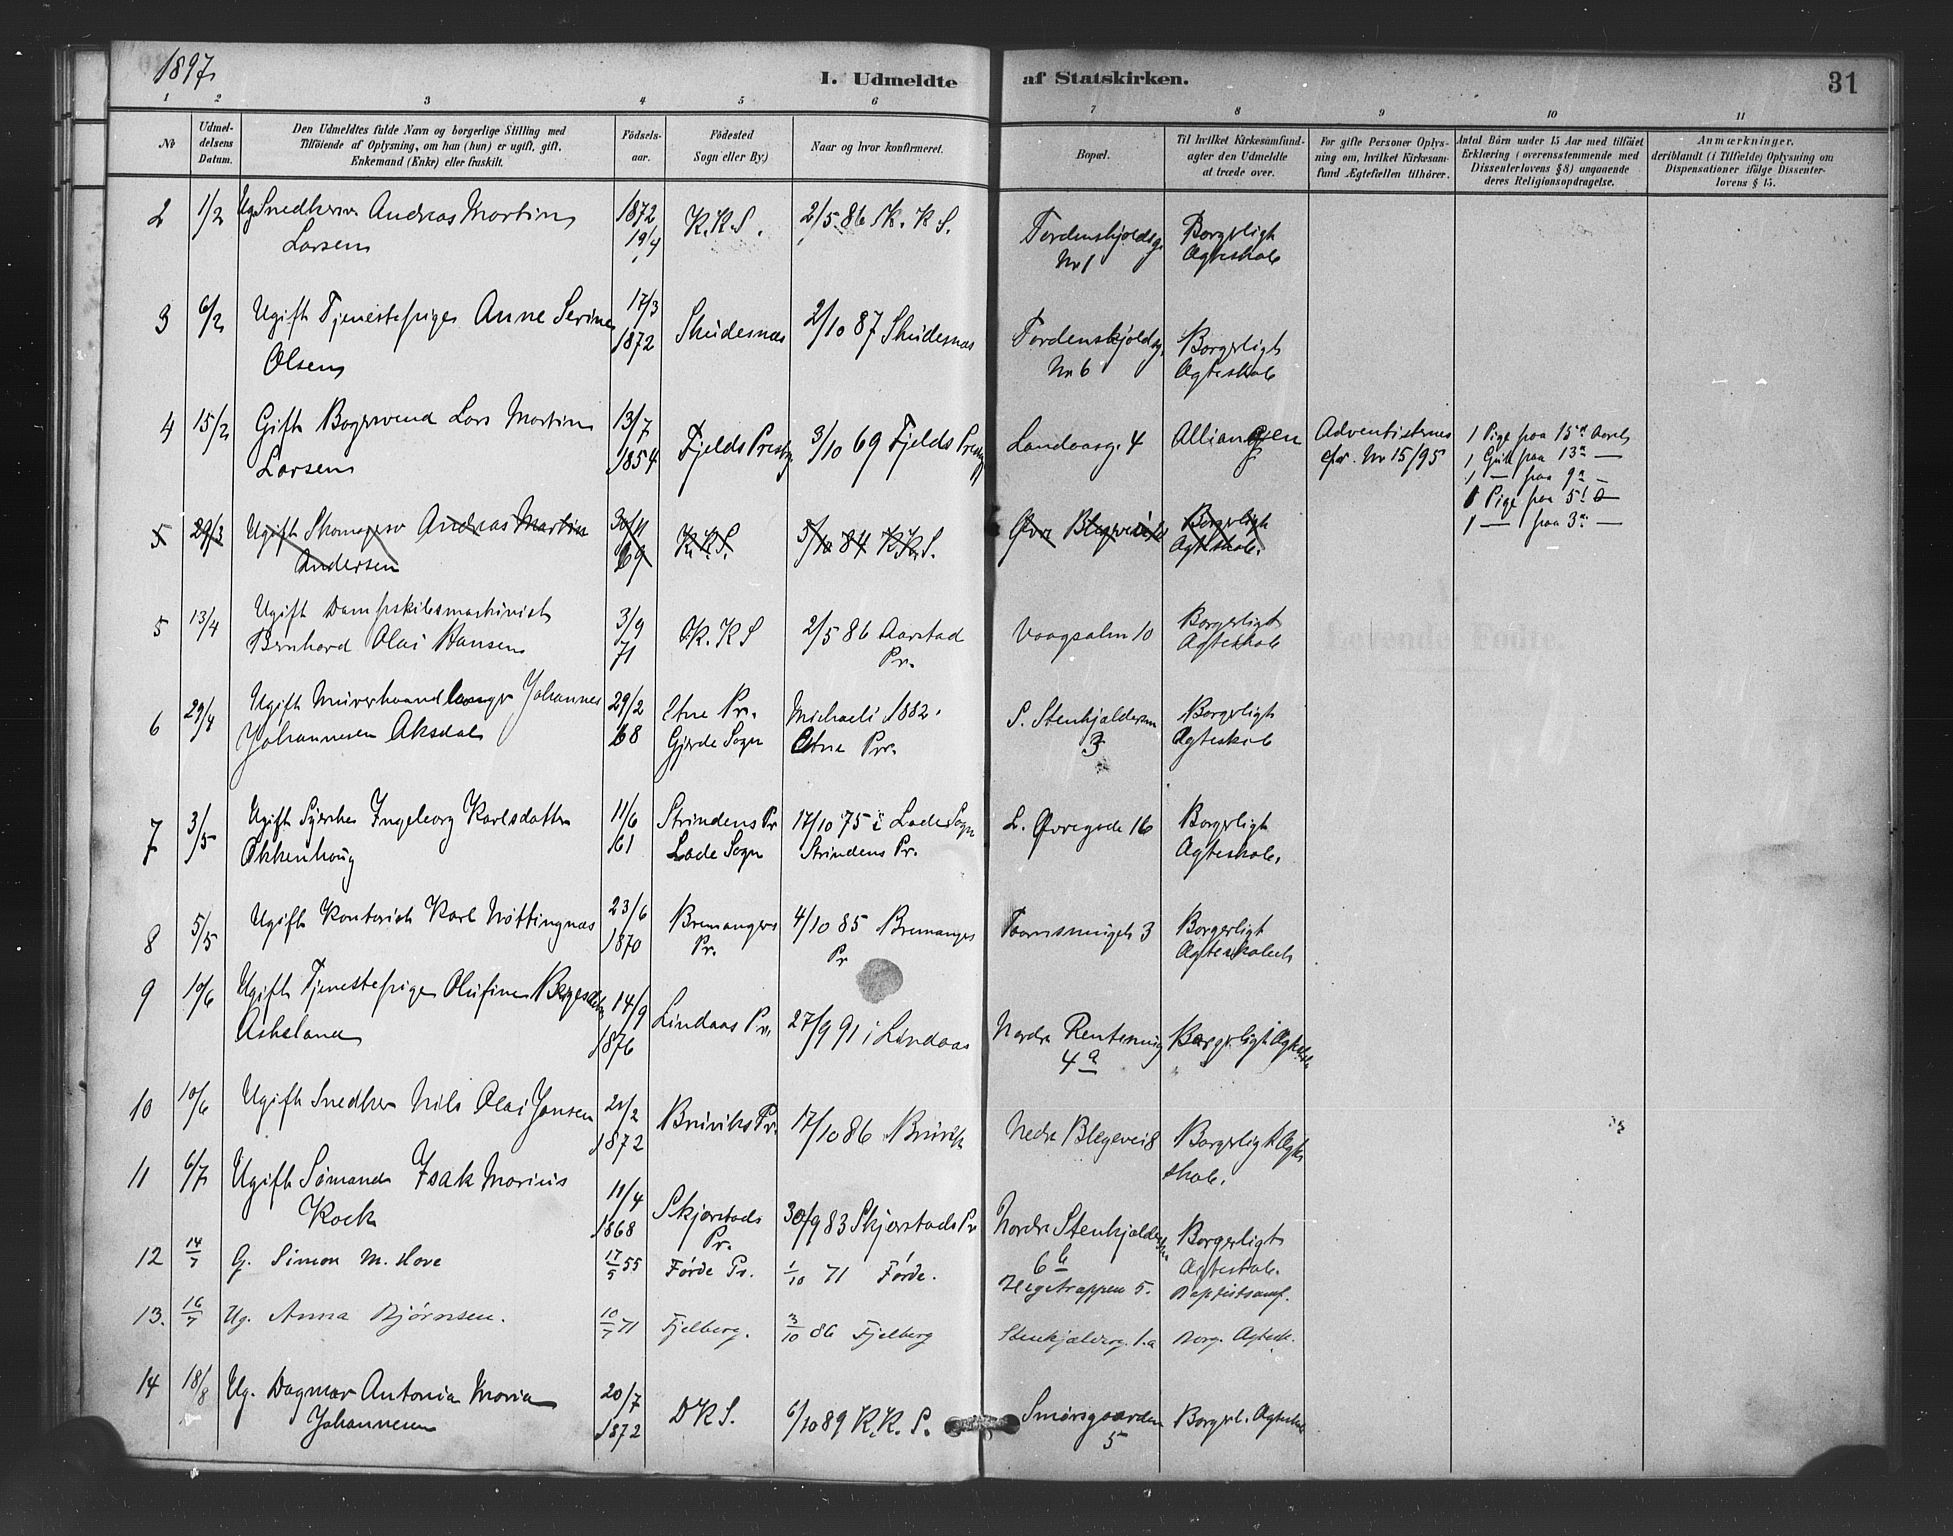 1897
I. Udmeldte af Statskirken.
31
1 2 3 4 5 6 7 8 9 10 11
No
Udmeldelsens Datum.
Den Udmeldtes fulde Navn og borgerlige Stilling med
Tilföiende af Oplysning, om han (hun) er ugift, gift,
Enkemand (Enke) eller fraskilt.
Födselsaar.
Födested
Sogn eller By.)
Naar og hvor konfirmeret.
Bopæl.
Til hvilket Kirkesamfund-
agter den Udmeldte
at træde over.
For gifte Personer Oplys-
ning om, hvilket Kirkesam-
fund Ægtefællen tilhörer.
Antal Börn under 15 Aar med tilföiet
Erklæring (overensstemmende med
Dissenterlovens § 8) angaaende
deres Religionsopdragelse.
Anmærkninger.
deriblandt (i Tilfælde) Oplysning om
Dispensationer ifölge Dissenter-
lovens § 15.
2 1/2 Ug. Snedkersv Andreas Martin 1872 K.K.S. 2/5 86 K.K.S. Tordenskjoldsg. Borgerligt
Larsen 19/4 No 1 Ægteskab
3 6/2 Ugift Tjenestepige Anne Serine 17/3 Skudesnæs 2/10 87 Skudesnæs Tordenskjoldsg. Borgerligt
Olsen 1872 No 6 Ægteskab
4 15/2 Gift Bagersvend Lars Martin 13/7 Fjelds Prestg 3/10 69 Fjelds Prestg Landaasg. 4 Alliancen Adventisternes 1 Pige paa 15 Aar
Larsen 1854 cfr. No 15/95 1 Gut paa 13 —
1 — paa 9 —
1 Pige paa 5 —
1 — paa 3 —
5 29/3 Ugift Skomagersv Andreas Martin 30/11 K.K.S. 5/10 84 K.K.S. Øvre Blegevei Borgerligt
Andersen 69 Ægteskab.
5 13/4 Ugift Dampskibsmaskinist 3/9 K.K.S 2/5 86 Aarstad Vaagsalm 10 Borgerligt
Bernhard Olai Hansen 71 Pr. Ægteskab
6 29/4 Ugift Murerhaandlanger Johannes 29/2 Etne Pr. Michaeli 1882. S. Stenkjelderen Borgerligt
Johannesen Aksdal 68 Gjerde Sogn Etne Pr. 3 Ægteskab
7 3/5 Ugift Syerske Ingeborg Karlsdatter 11/6 Strindens Pr 17/10 75 i Lade Sogn L. Øvregade 16 Borgerligt
Okkenhoug 61 Lade Sogn Strindens Pr. Ægteskab.
8 5/5 Ugift Kontorist Karl Nøttingnæs 23/6 Bremangers 4/10 85 Bremanger Taarnsmuget 3 Borgerligt
1870 Pr. Pr Ægteskabet
9 10/6 Ugift Tjenestepige Olufine Børgesdtr 14/9 Lindaas Pr. 27/9 91 i Lindaas Nordre Rentesmug Borgerligt Ægteskab
Askeland 1876 4 a
10 10/6 Ugift Snedker Nils Olai Jansen 20/2 Bruviks Pr. 17/10 86 Bruvik Nedre Blegevei 8 Borgerligt Ægte
1872 skab.
11 6/7 Ugift Sømand Isak Marius 11/4 Skjerstads 30/9 83 Skjerstads Pr Nordre Stenkjelder Borgerligt
Koch 1868 Pr. 6 b Ægteskab.
12 14/7 G. Simon M. Hove 17/5 55 Førde Pr. 1/10 71 Førde. Hegetrappen 5. Baptistsamf.
13. 16/7 Ug. Anna Bjørnsen. 10/7 71 Fjelberg. 3/10 86 Fjelberg Stenkjelderg. 1.a Borg. Ægtesk.
14 18/8 Ug. Dagmar Antonia Maria 20/7 DKS. 6/10 89 K.K.S. Smørsgaarden Borgerl. Ægteskab
Johannesen 1872 5